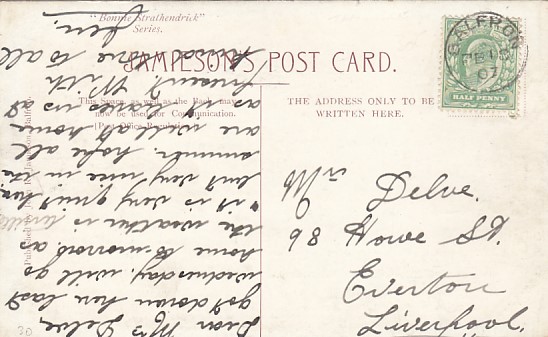 "Bonnie Strathendrick"
Series.
JAMIESON'S POST CARD.
This Space, as well as the Back, may
now be used for Communication.
(Post Office Regulation.)
THE ADDRESS ONLY TO BE
WRITTEN HERE.
BALFRON
07
HALF PENNY
Mrs Delve.
98 Howe St.
Everton
Liverpool.
Dear Mrs Delve,
got down here last
wednesday. will go
home to-morrow, as
the weather is
it is very quiet here,
but very nice in the
summer. hope all
are well at home
as this leaves us at
present. With
love to all
30